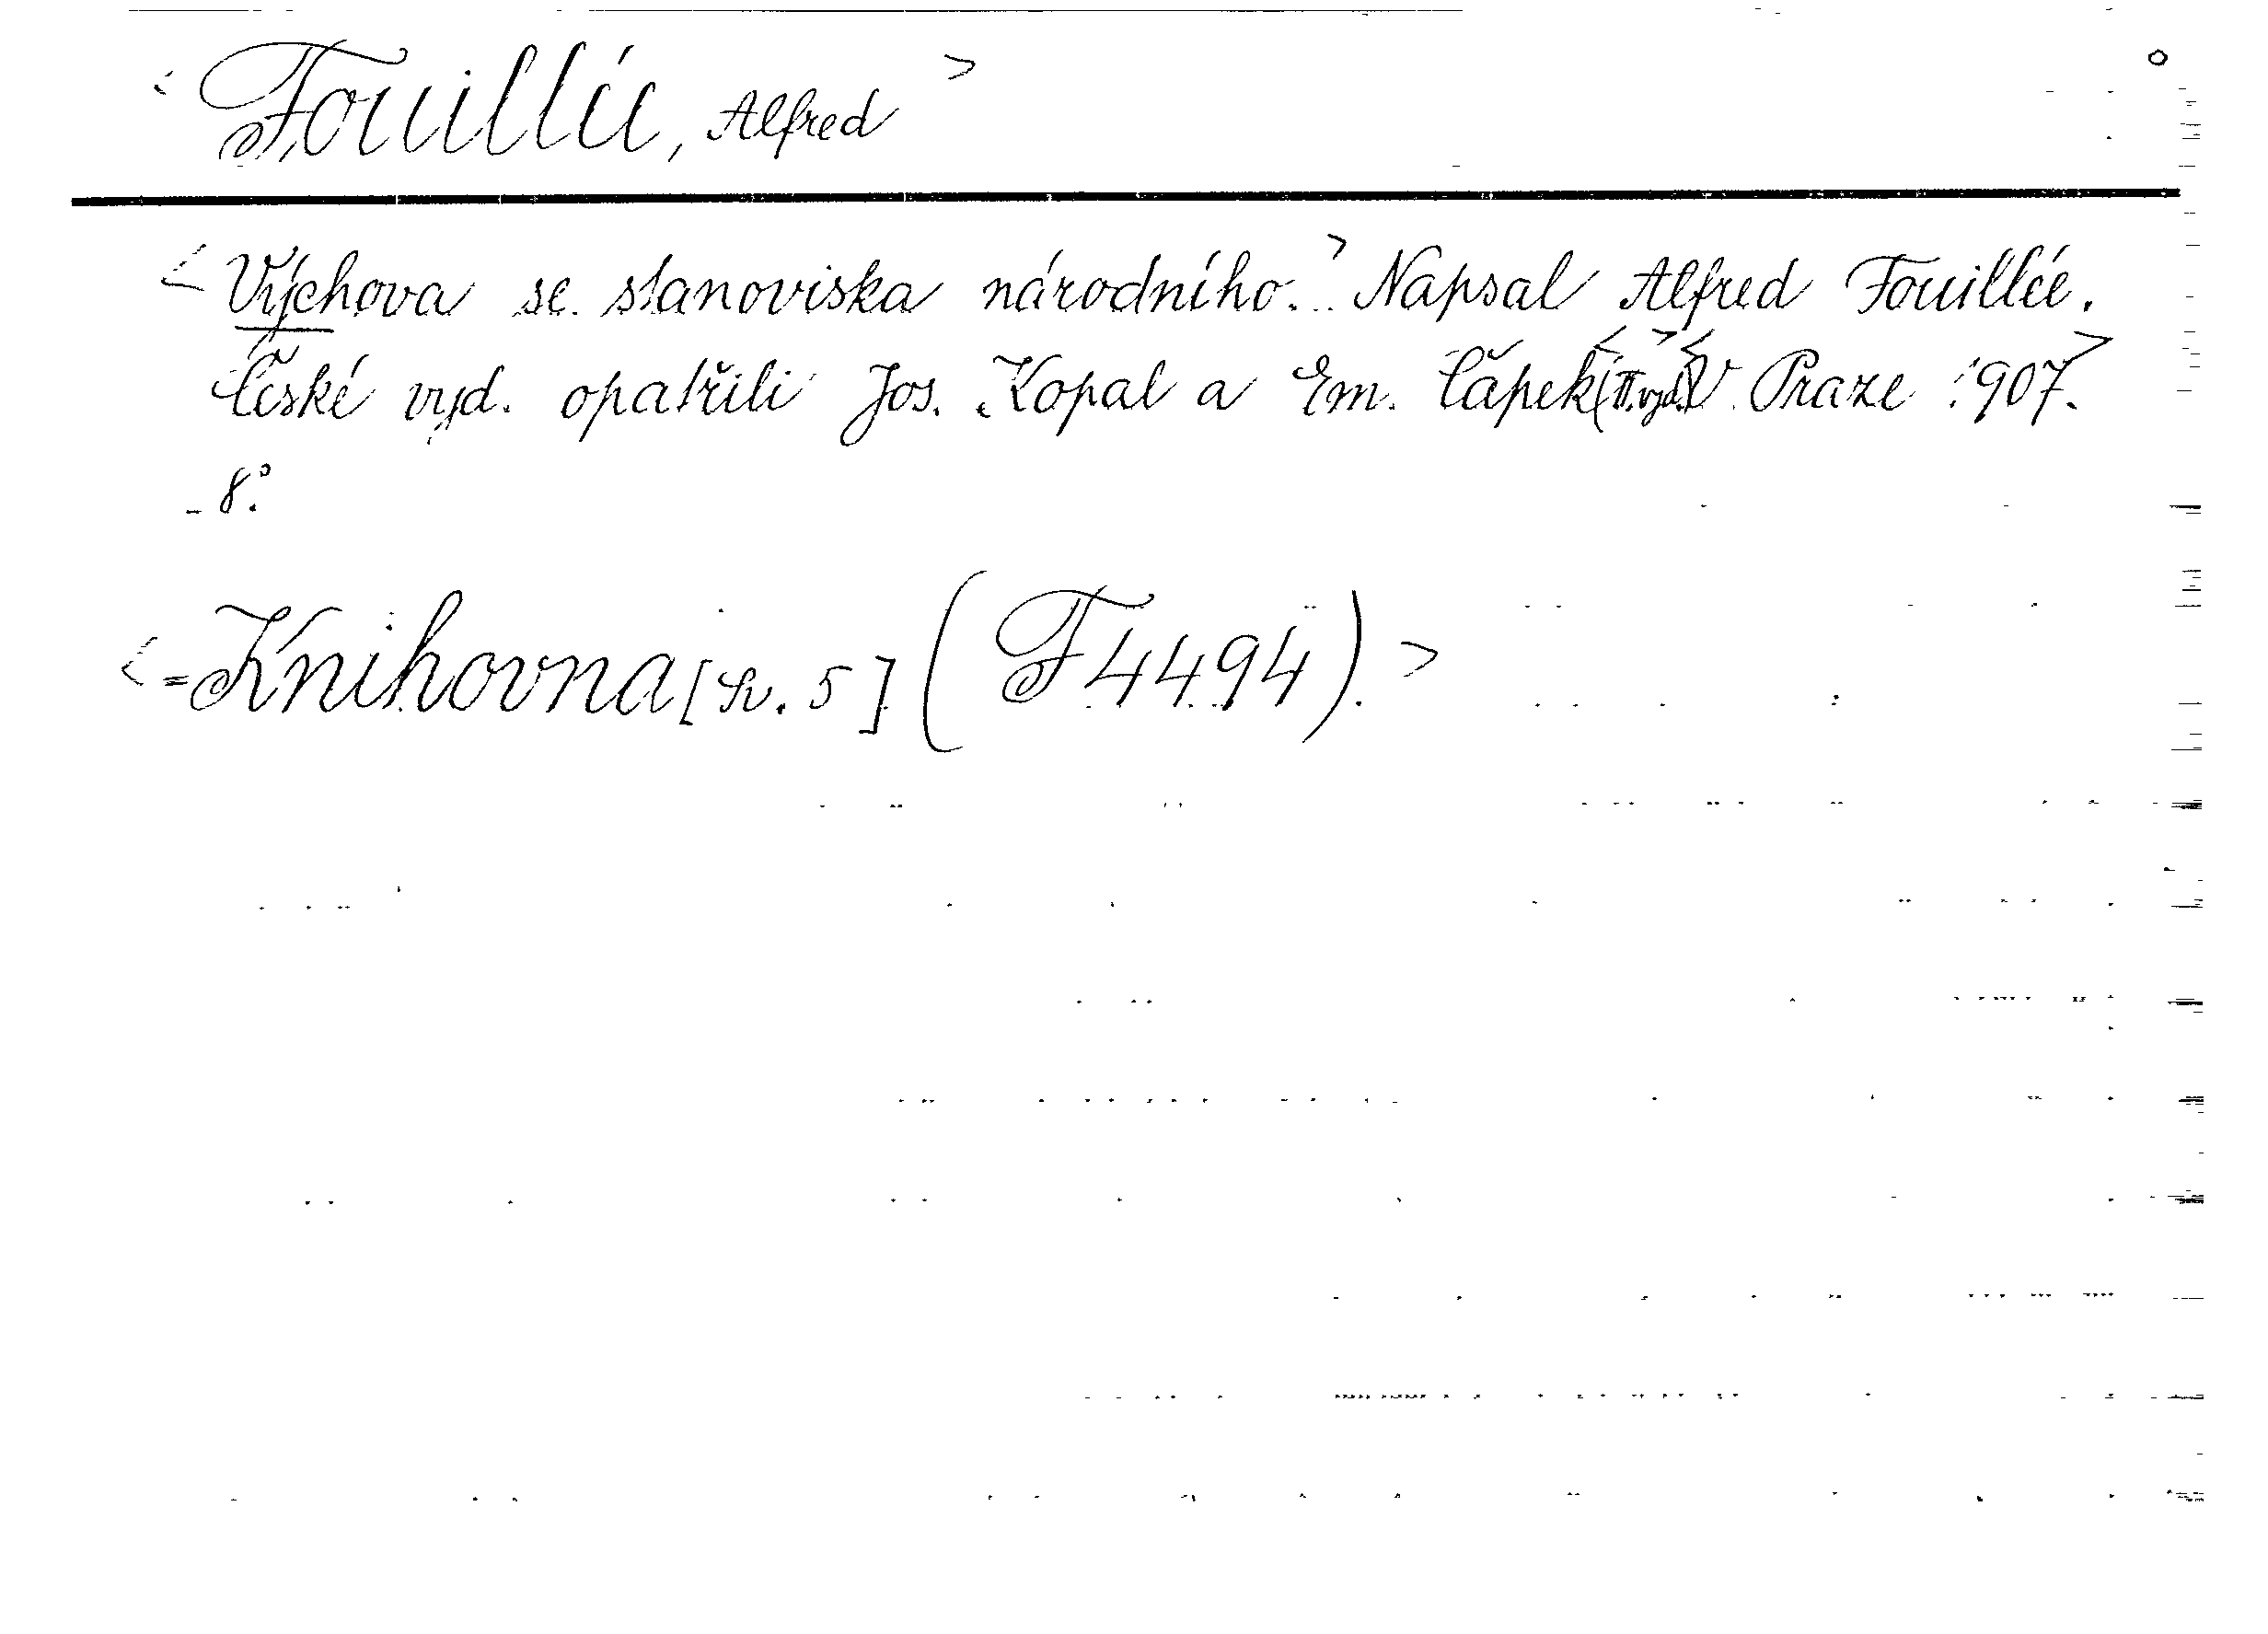 < Fouillée, Alfred >
< Výchova se stanoviska národního. > Napsal Alfred Fouillée.
České vyd. opatřili Jos. Kopal a Em. Čápek < (II. vyd.) > < V Praze 1907. >
8°.
< = Knihovna [sv. 5] (F 4494). >